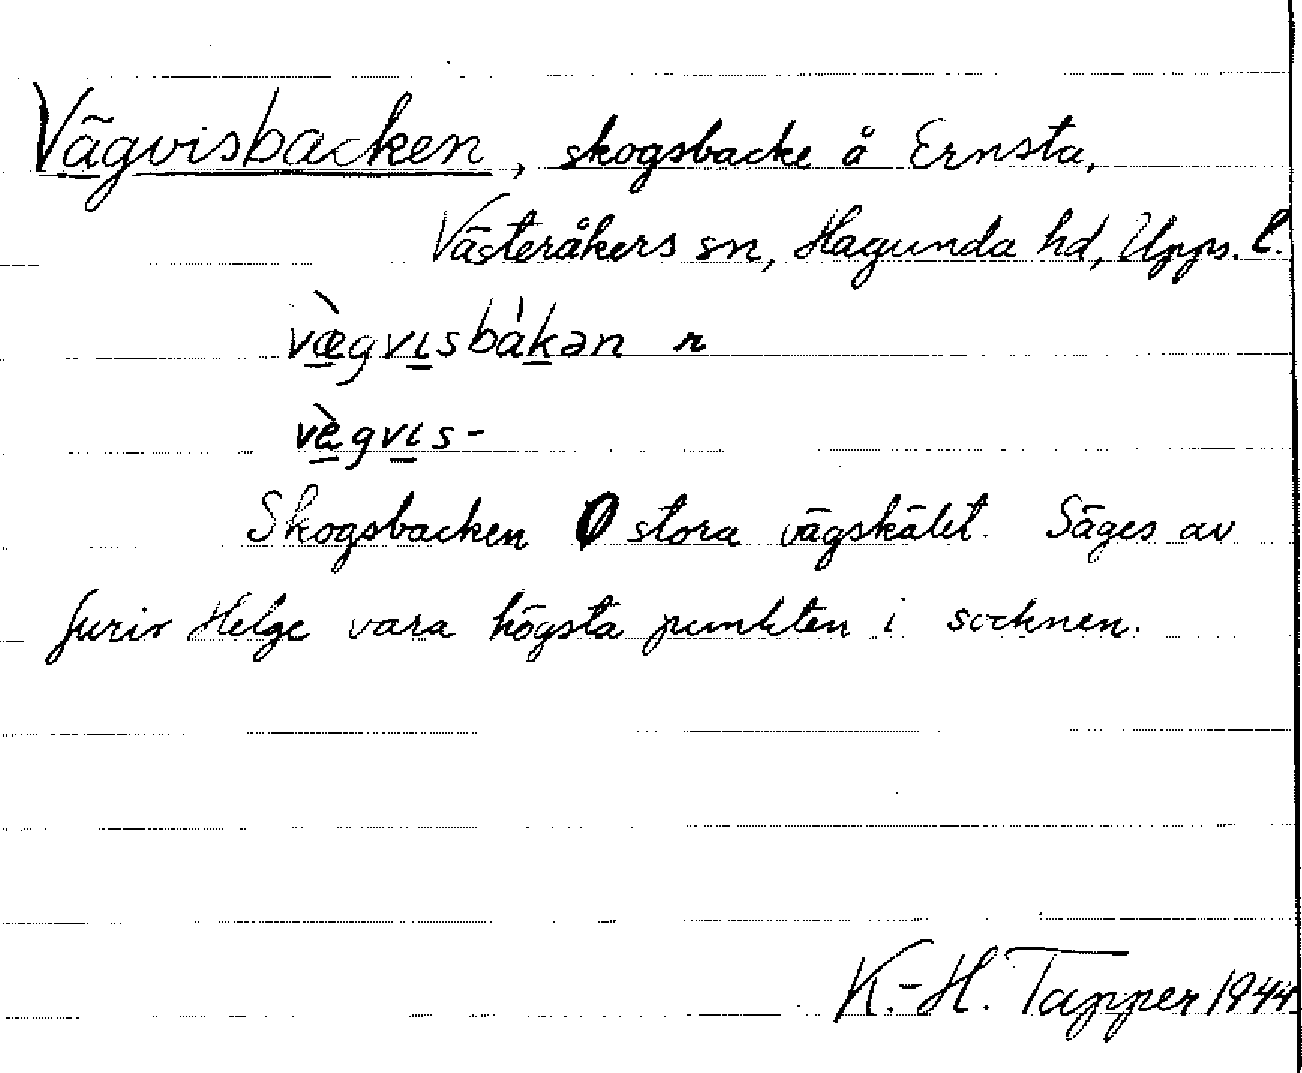 Vägvisbacken, skogsbacke å Ernsta,
Västeråkers sn, Hagunda hd, Upps. l.
væ̀gvısbákən n
vègvıs-
Skogsbacken Ö stora vägskälet. Säges av
Helge vara högsta punkten i socknen.
K.-H. Tapper 1944